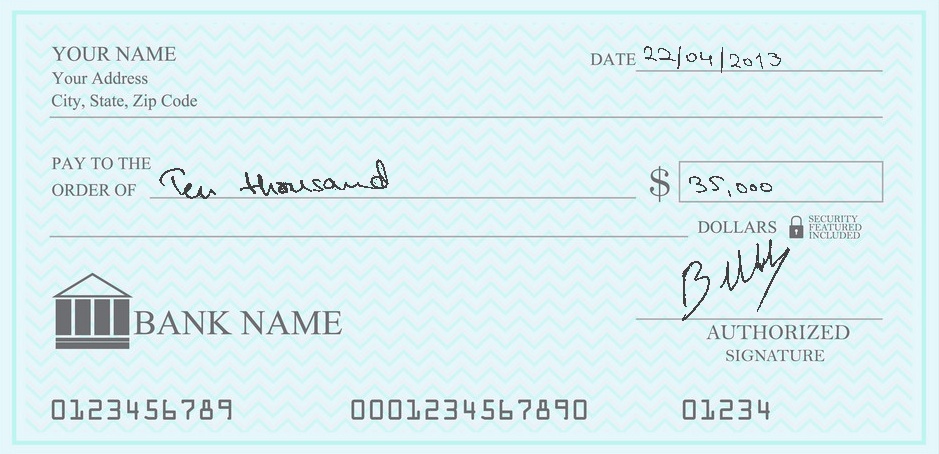 YOUR NAME
Your Address
City, State, Zip Code
DATE 22/04/2013
PAY TO THE
ORDER OF Ten thousand $ 35,000
DOLLARS SECURITY
FEATURED
INCLUDED
BANK NAME
AUTHORIZED
SIGNATURE
0123456789 0001234567890 01234